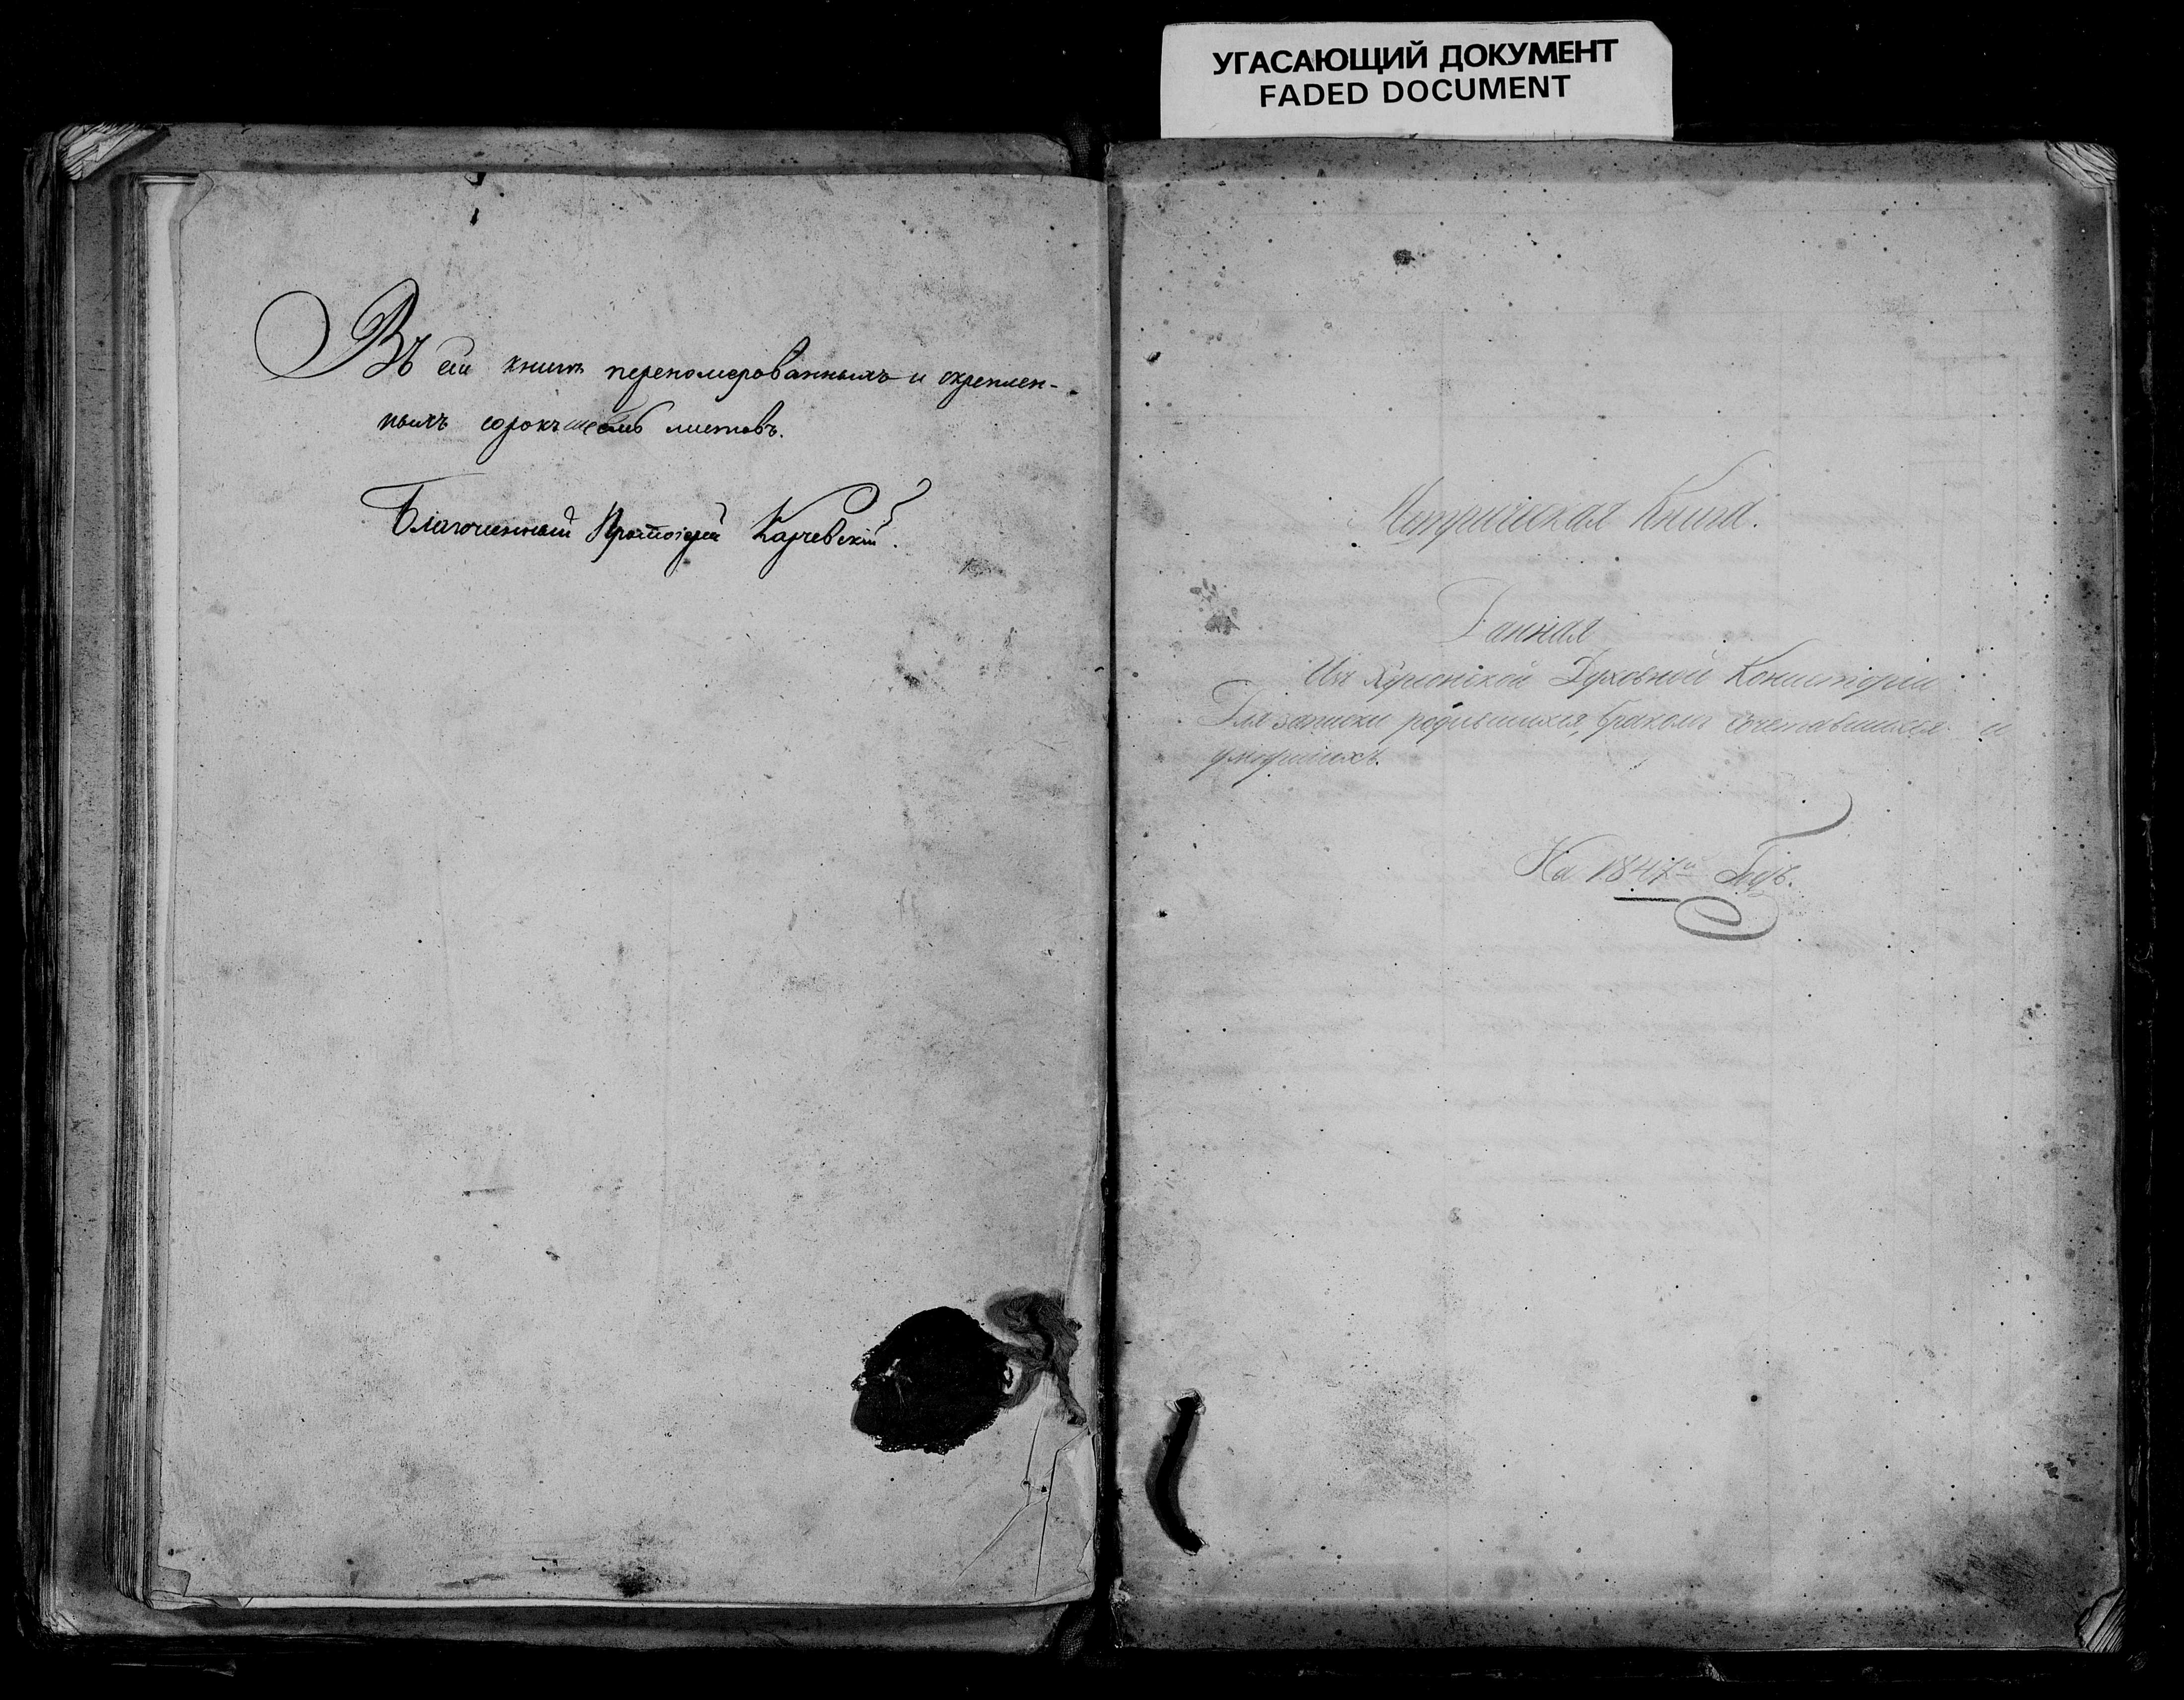 УГАСАЮЩИЙ ДОКУМЕНТ
FADED DOCUMENT
Въ сей книгѣ перепомерованныхъ и скреплен-
ныхъ сорокъ листовъ.
Благочинный Протоіерей Карчевскій.
Метрическая Книга.
Данная
Изъ Херсонской Духовной Консисторіи
Для записки родившихся, бракомъ сочетавшихся и
умершихъ.
На 1847й Годъ.